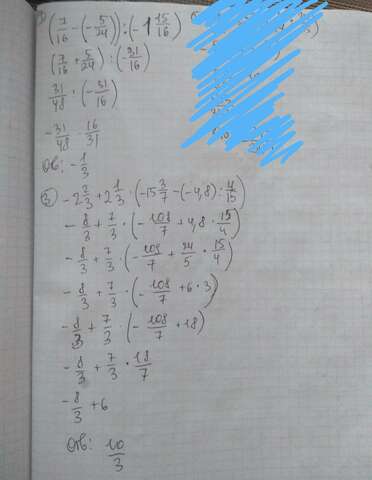 (7/16 - (-5/24)) : (-1 15/16)
(7/16 + 5/24) : (-31/16)
31/48 : (-31/16)
-31/48 · 16/31
Отв: -1/3
③ -2 2/3 + 2 1/3 · (-15 3/7 - (-4,8) : 4/15)
-8/3 + 7/3 · (-108/7 + 4,8 · 15/4)
-8/3 + 7/3 · (-108/7 + 24/5 · 15/4)
-8/3 + 7/3 · (-108/7 + 6 · 3)
-8/3 + 7/3 · (-108/7 + 18)
-8/3 + 7/3 · 18/7
-8/3 + 6
Отв: 10/3